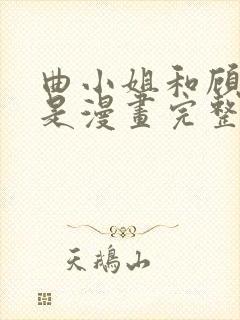 曲小姐和顾
是漫畫完整
天鵝山